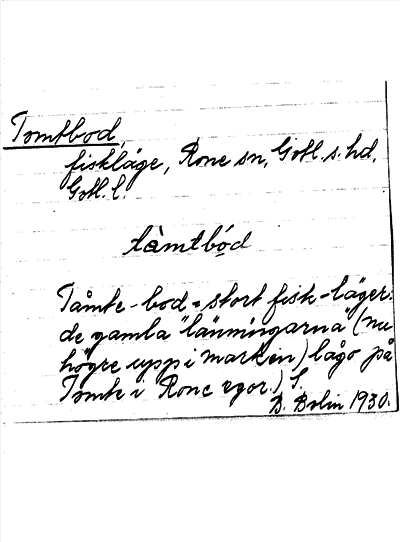 Tomtbod,
fiskläge, Rone sn, Gotl. s. hd,
Gotl. l.
tàmtbód
Tåmte-bod = stort fisk-läger:
de gamla "länningarna" (nu
högre upp i marken) lågo på
Tomte i Rone egor.) S.
B. Bolin 1930.